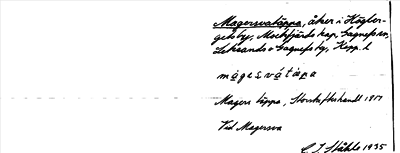 Magersvatäppa, åker i Högber-
gets by, Mockfjärds kap., Gagnefs sn,
Leksands o Gagnefs tg, Kopp. l
mágesvátápa
Magers täppa, Storskifteshandl 1817
Vid Magersva
1935